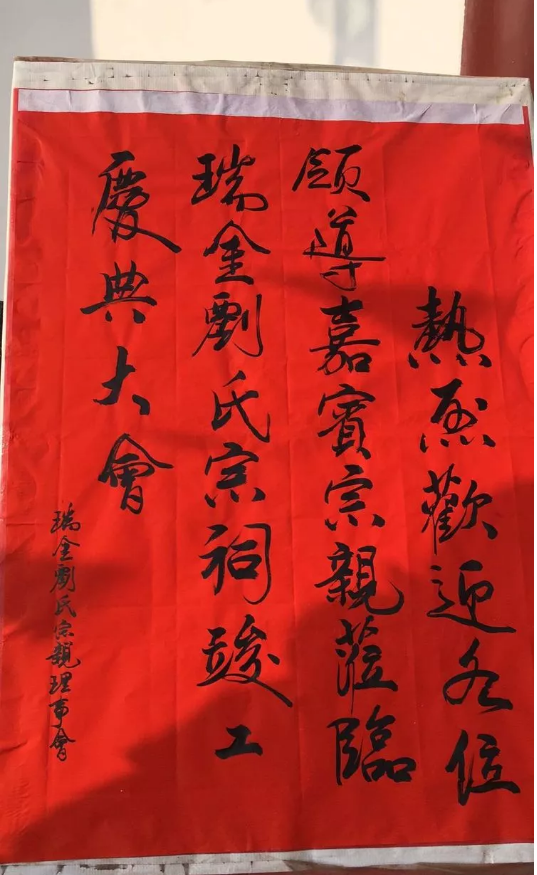 熱烈歡迎各位
領導嘉賓宗親蒞臨
瑞金劉氏宗祠竣工
慶典大會
瑞金劉氏宗親理事會